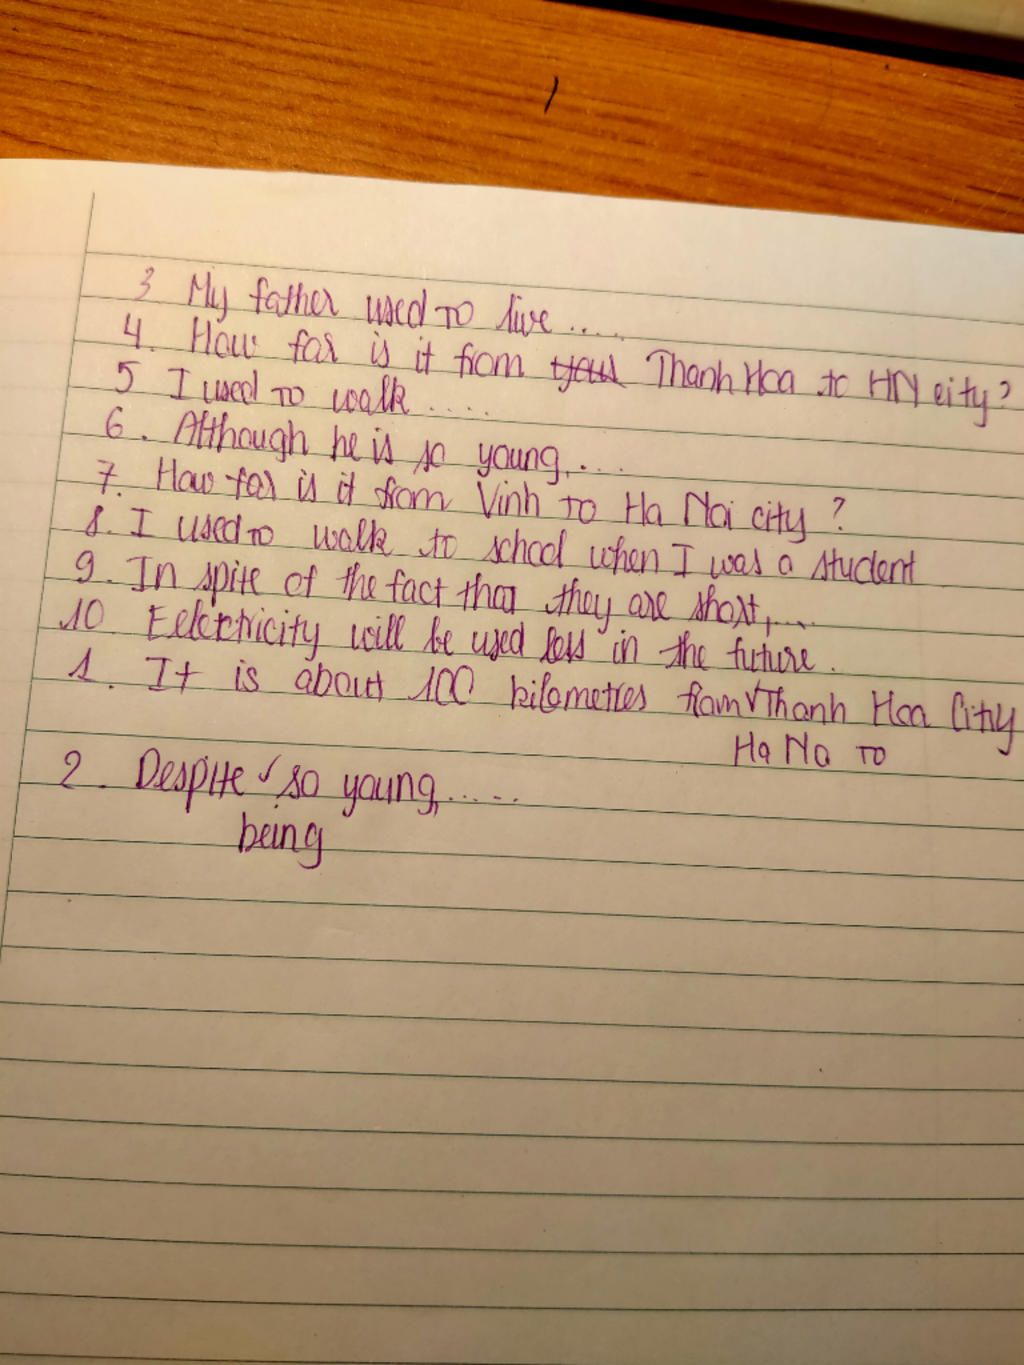 3 My father used to live ....
4. How far is it from your Thanh Hoa to HN city?
5 I used to walk ....
6. Although he is so young, ...
7. How far is it from Vinh to Ha Noi city ?
8. I used to walk to school when I was a student
9. In spite of the fact that they are short, ...
10 Eelectricity will be used less in the future.
1. It is about 100 kilometres from Thanh Hoa City
Ha No to
2. Despite so young, .....
being